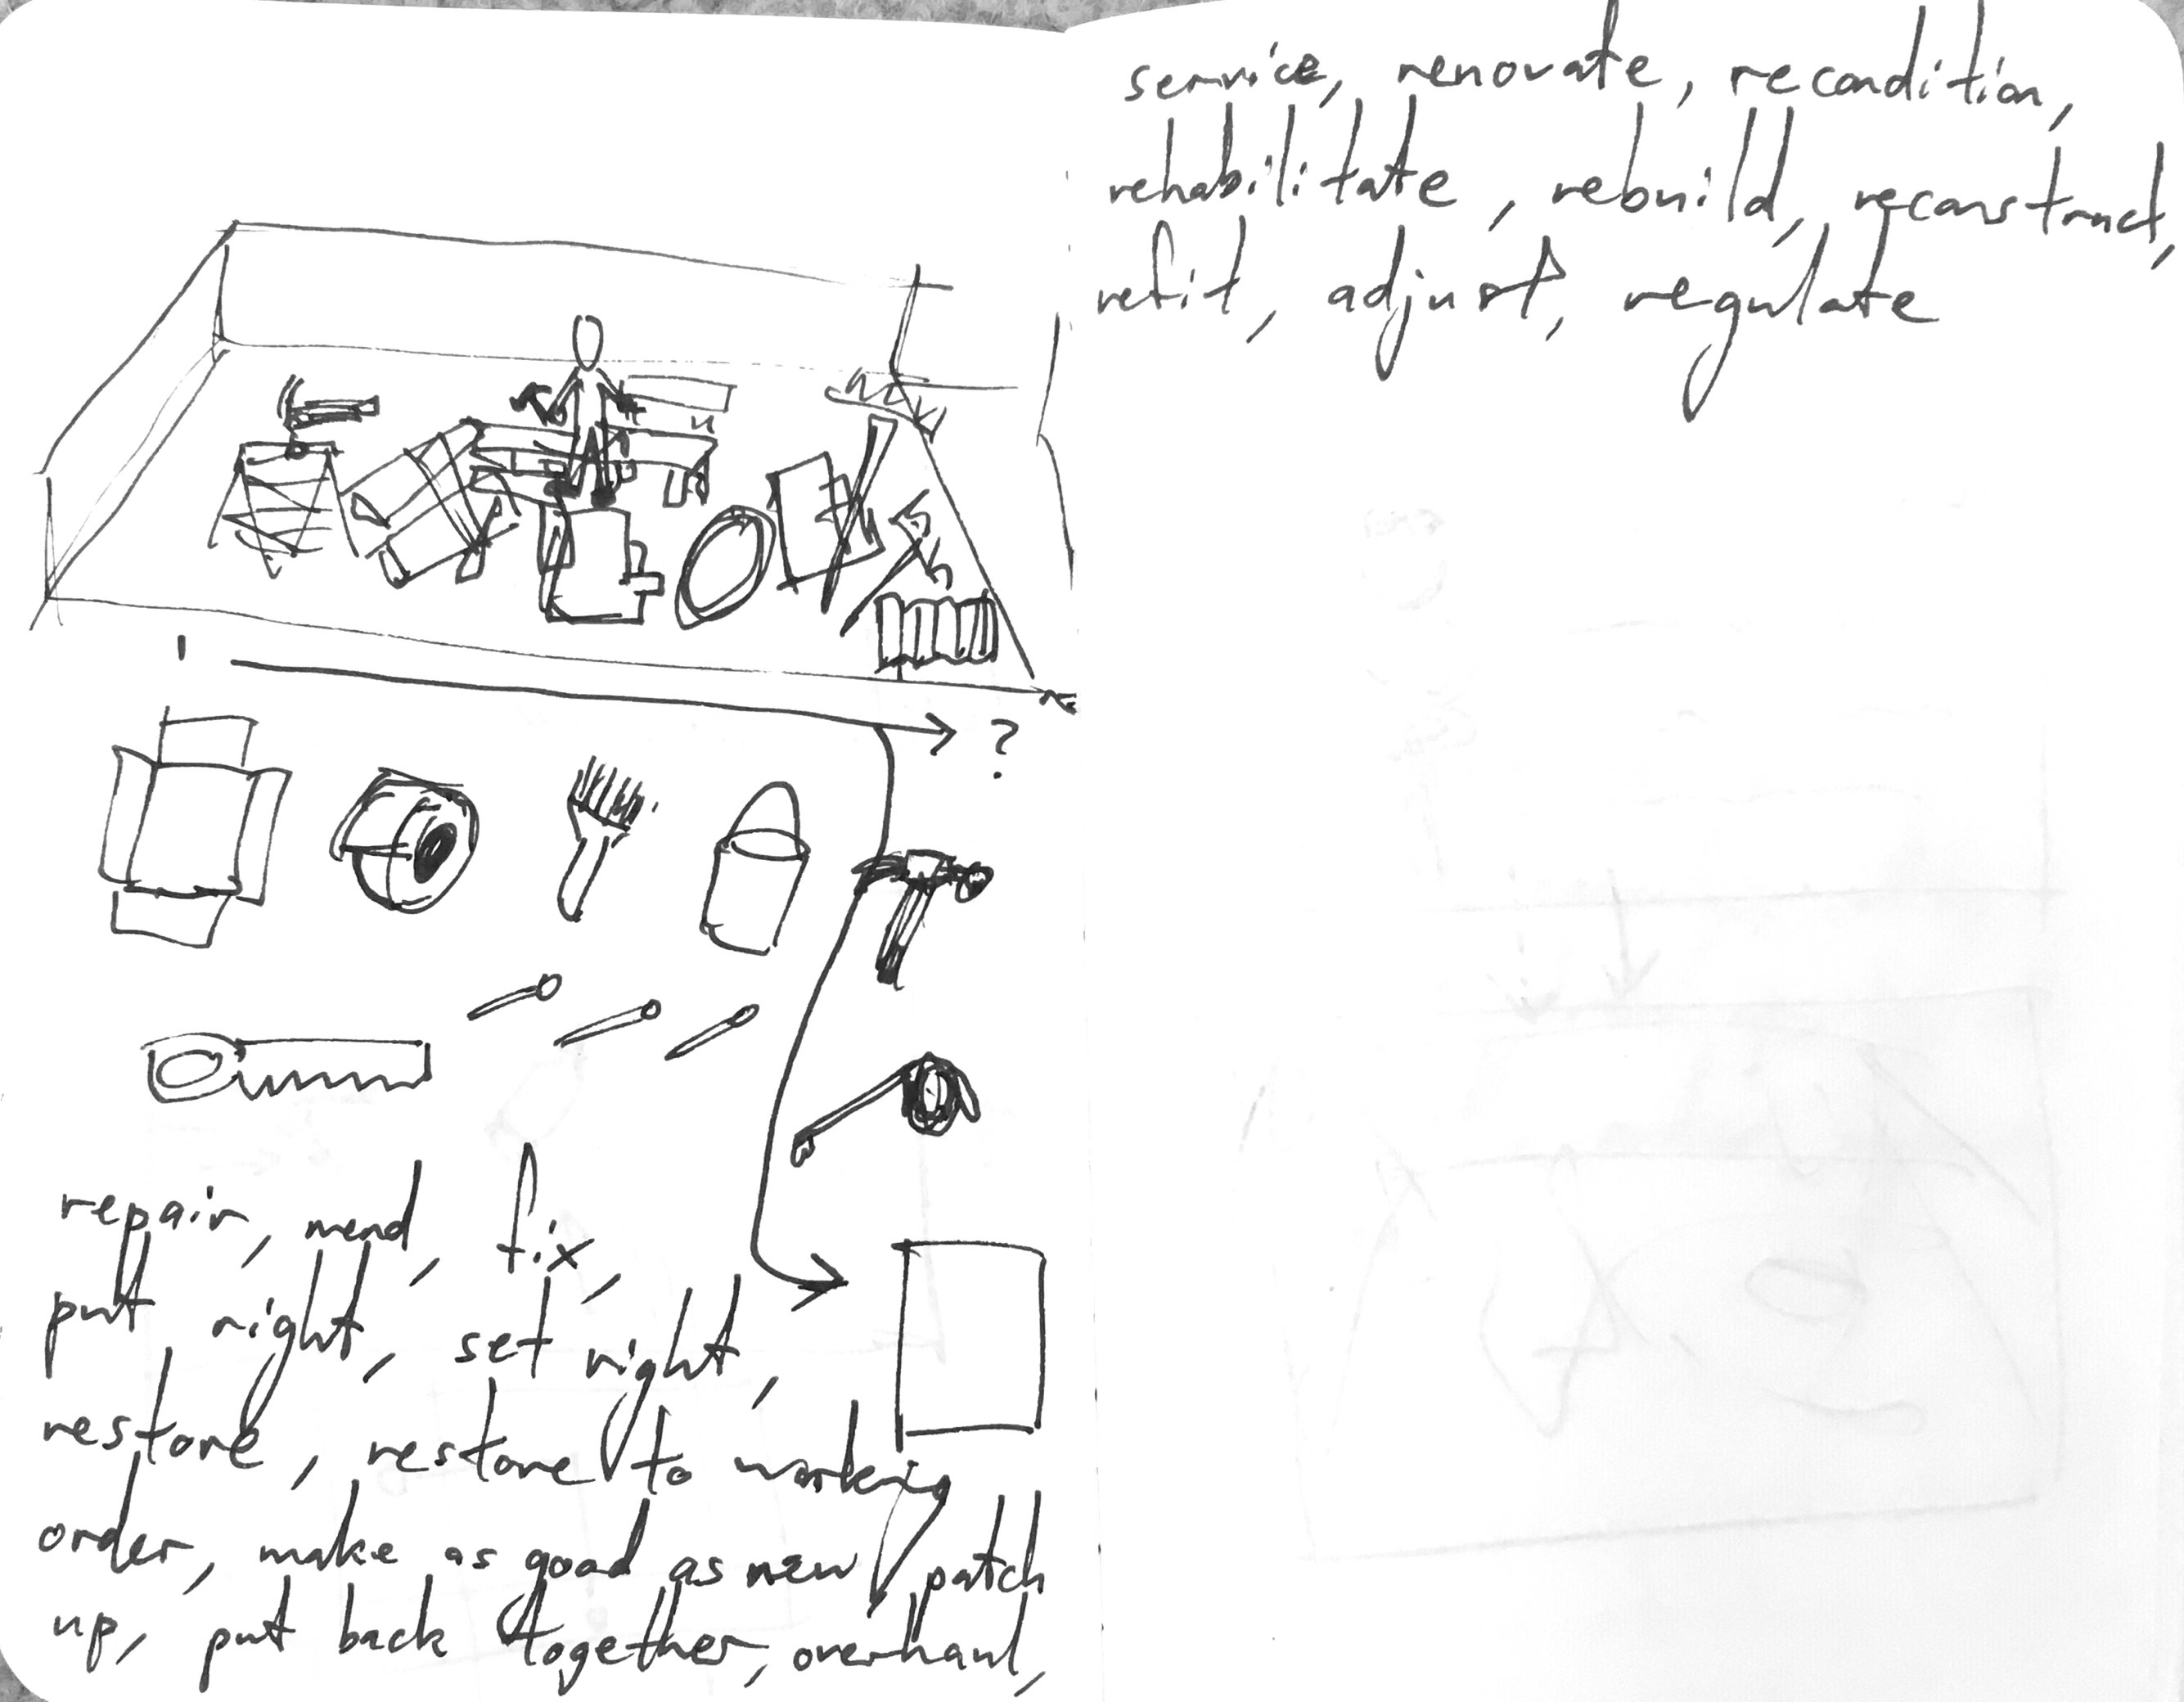 ?
repair, mend, fix,
put right, set right,
restore, restore to working
order, make as good as new, patch
up, put back together, overhaul,
service, renovate, recondition,
rehabilitate, rebuild, reconstruct,
refit, adjust, regulate